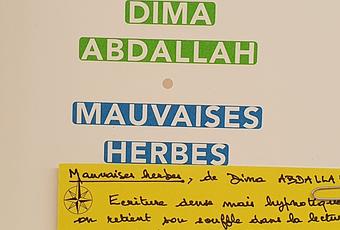 DIMA
ABDALLAH
MAUVAISES
HERBES
Mauvaises herbes, de Dima ABDALLA
Ecriture sens mais hypnotique
on retient son souffle dans la lectur